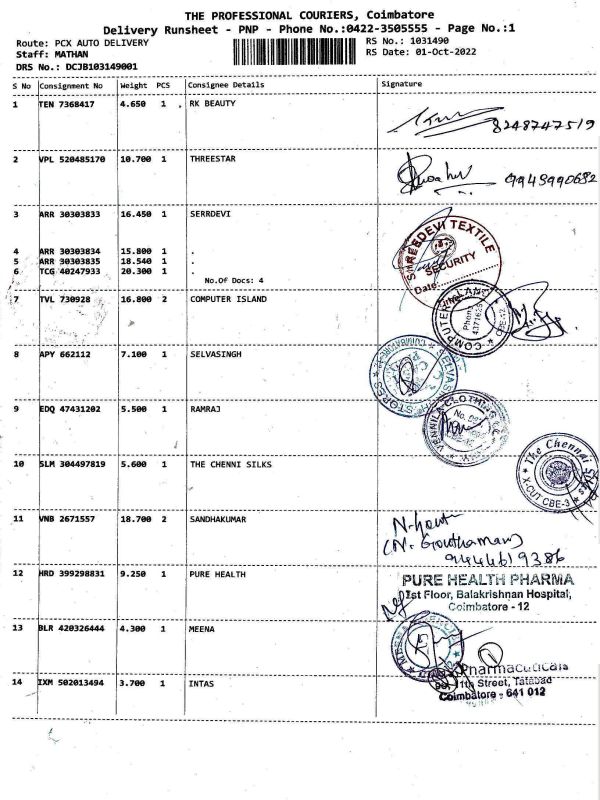 THE PROFESSIONAL COURIERS, Coimbatore
Delivery Runsheet - PNP - Phone No.:0422-3505555 - Page No.:1
Route: PCX AUTO DELIVERY
RS No.: 1031490
Staff: MATHAN
RS Date: 01-Oct-2022
DRS No.: DCJB103149001
S No Consignment No Weight PCS Consignee Details Signature
1 TEN 7368417 4.650 1 RK BEAUTY
8248747519
2 VPL 520485170 10.700 1 THREESTAR
9943990682
3 ARR 30303833 16.450 1 SERRDEVI
SHREEDEVI TEXTILE
SECURITY
Date:
4 ARR 30303834 15.800 1 .
5 ARR 30303835 18.540 1 .
6 TCG 40247933 20.300 1 .
No.Of Docs: 4
7 TVL 730928 16.800 2 COMPUTER ISLAND
COMPUTER ISLAND
Phone
8 APY 662112 7.100 1 SELVASINGH
STORES
9 EDQ 47431202 5.500 1 RAMRAJ
VANNILA CLOTHING
10 SLM 304497819 5.600 1 THE CHENNI SILKS
The Chennai Silks
X-CUT CBE-3
11 VNB 2671557 18.700 2 SANDHAKUMAR
(N. Gouthaman)
9444619386
12 HRD 399298831 9.250 1 PURE HEALTH
PURE HEALTH PHARMA
1st Floor, Balakrishnan Hospital,
Coimbatore - 12
13 BLR 420326444 4.300 1 MEENA
MEENA
14 IXM 502013494 3.700 1 INTAS
Pharmaceuticals
11th Street, Tatabad
Coimbatore - 641 012